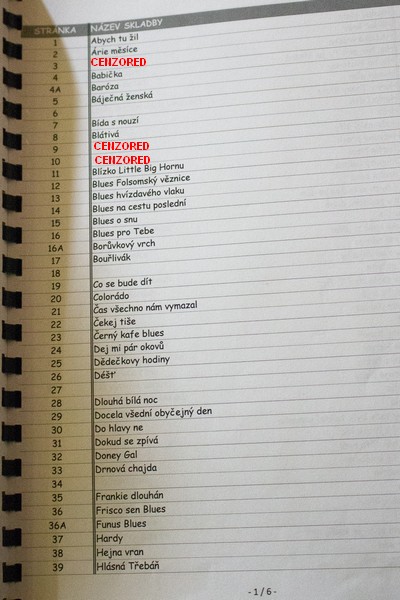 STRÁNKA NÁZEV SKLADBY
1 Abych tu žil
2 Árie měsíce
3 CENZORED
4 Babička
4A Baróza
5 Báječná ženská
6
7 Bída s nouzí
8 Blátivá
9 CENZORED
10 CENZORED
11 Blízko Little Big Hornu
12 Blues Folsomský věznice
13 Blues hvízdavého vlaku
14 Blues na cestu poslední
15 Blues o snu
16 Blues pro Tebe
16A Borůvkový vrch
17 Bouřlivák
18
19 Co se bude dít
20 Colorádo
21 Čas všechno nám vymazal
22 Čekej tiše
23 Černý kafe blues
24 Dej mi pár okovů
25 Dědečkovy hodiny
26 Déšť
27
28 Dlouhá bílá noc
29 Docela všední obyčejný den
30 Do hlavy ne
31 Dokud se zpívá
32 Doney Gal
33 Drnová chajda
34
35 Frankie dlouhán
36 Frisco sen Blues
36A Funus Blues
37 Hardy
38 Hejna vran
39 Hlásná Třebáň
- 1 / 6 -